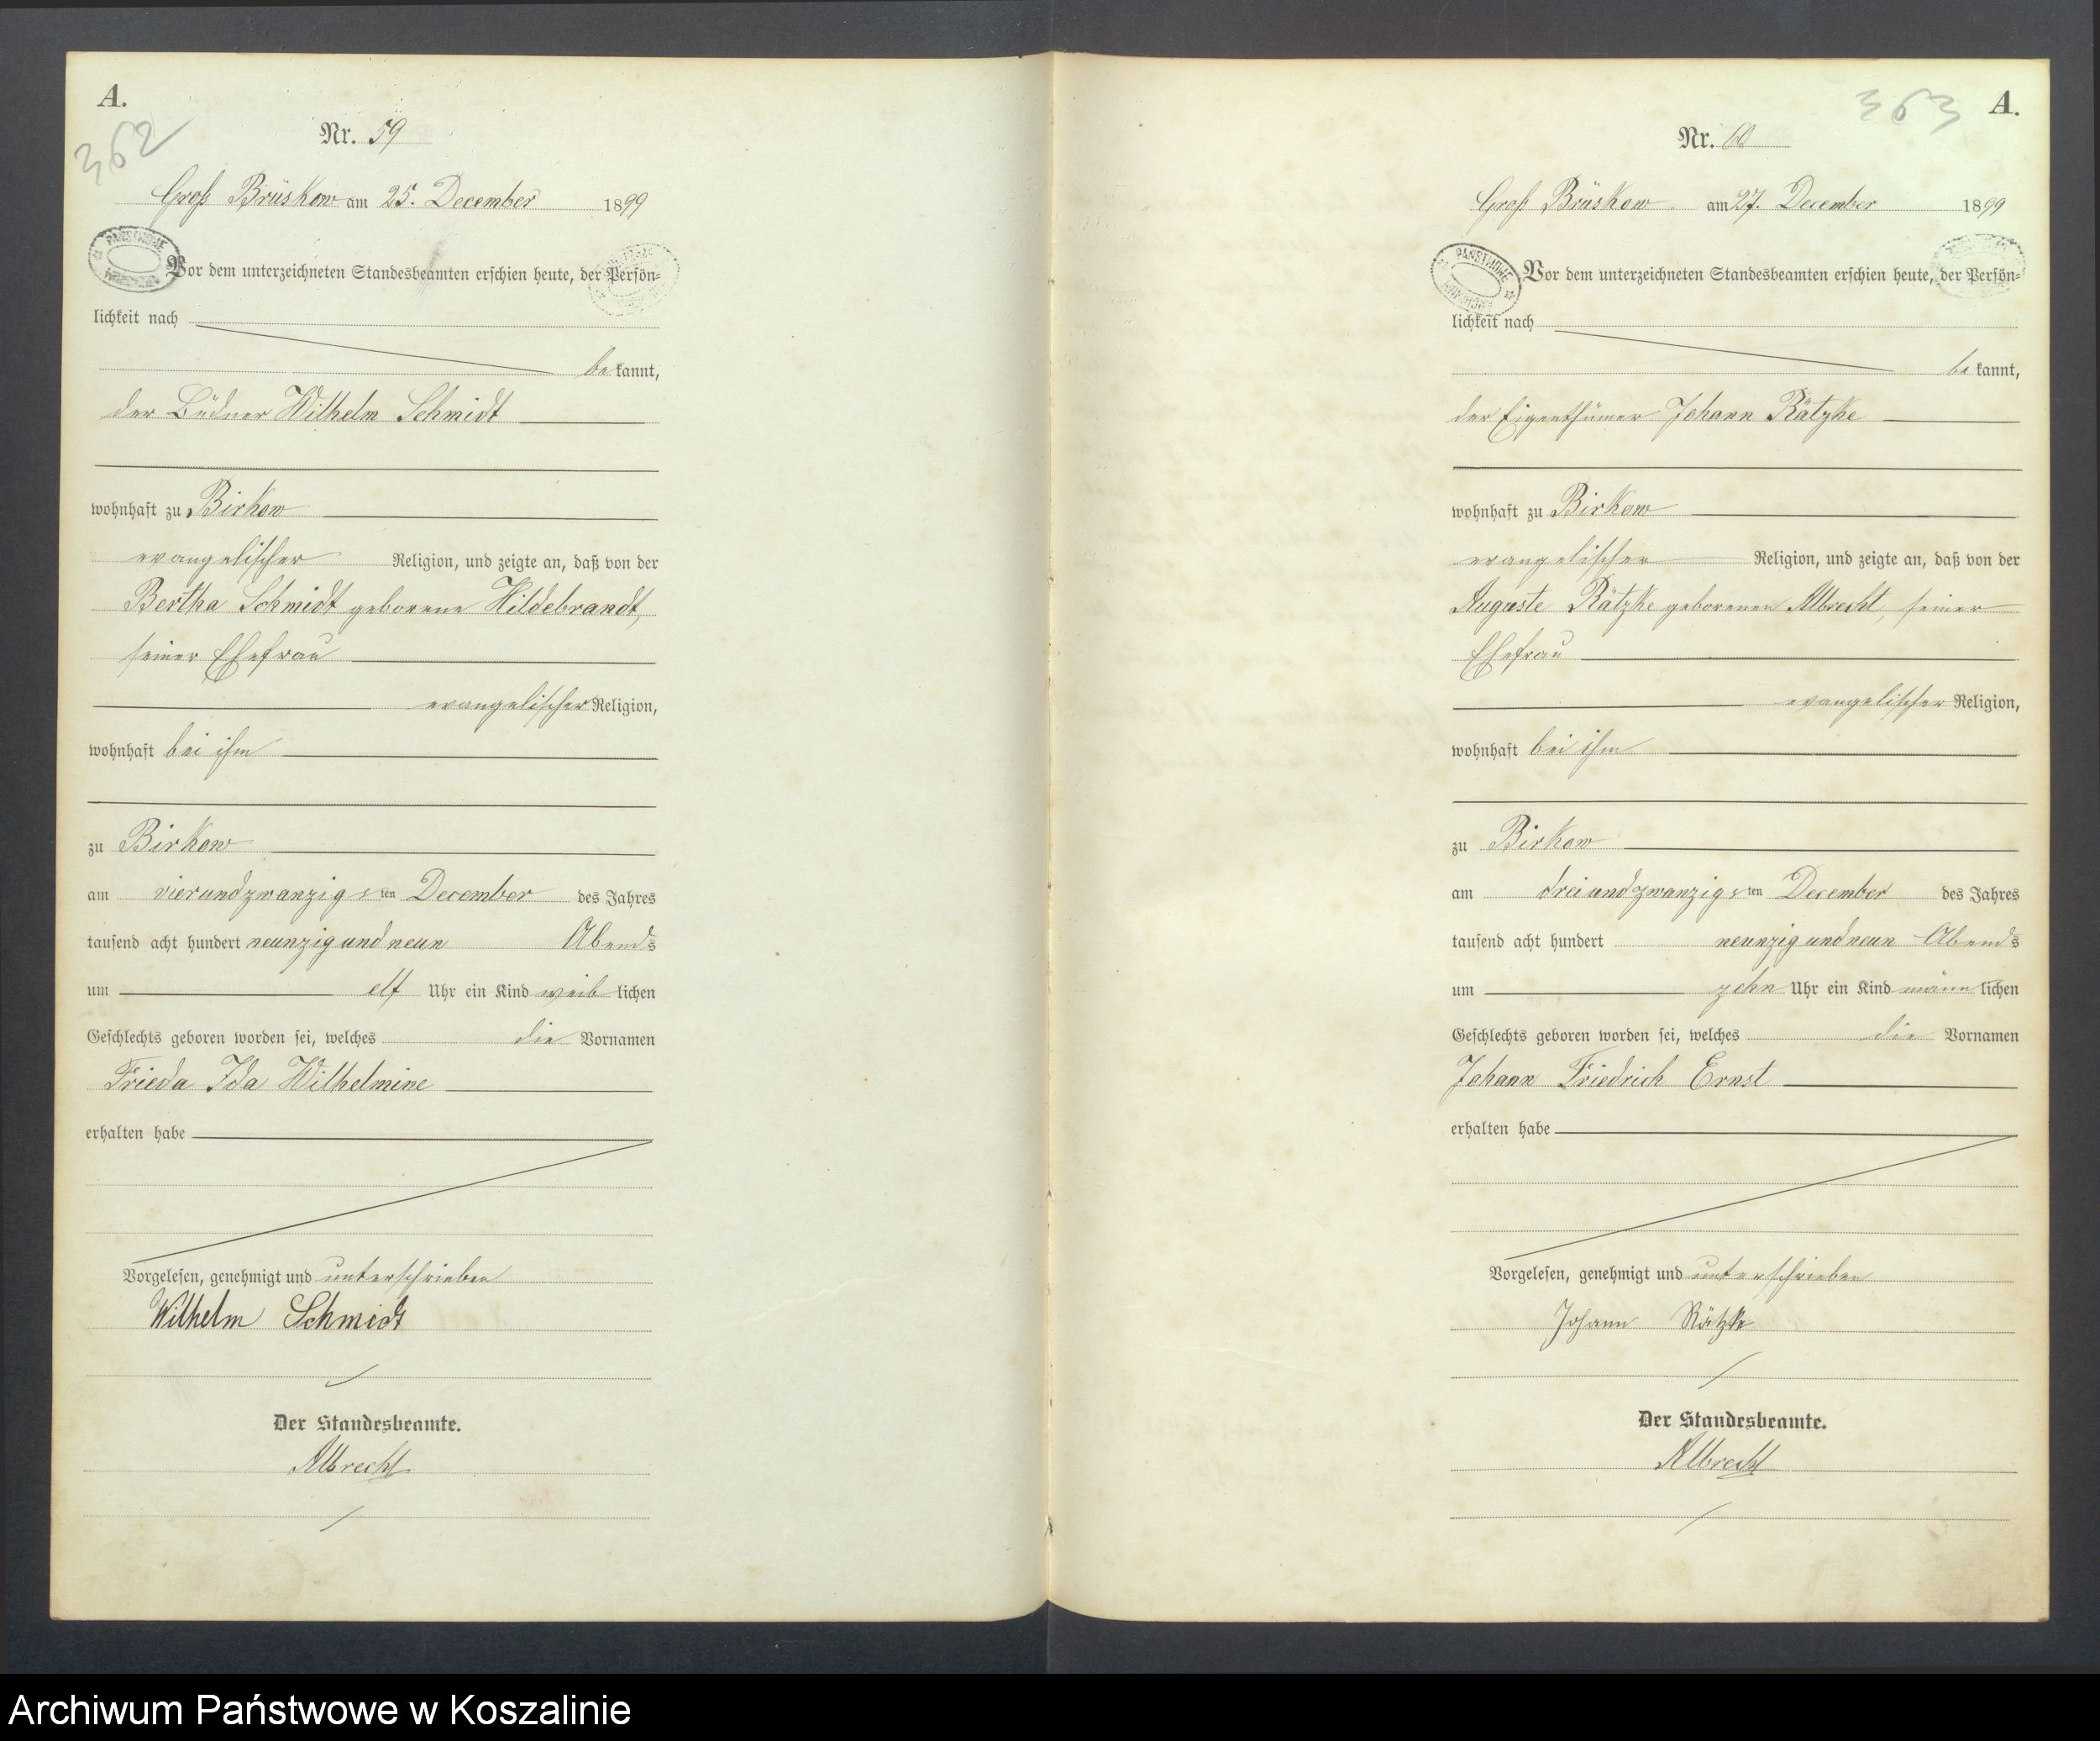 A.
362
Nr. 59
Groß Brüskow am 25. December 1899
PAŃSTWOWE
Vor dem unterzeichneten Standesbeamten erschien heute, der Persön-
lichkeit nach
be kannt,
der Büdner Wilhelm Schmidt
wohnhaft zu Birkow
evangelischer Religion, und zeigte an, daß von der
Bertha Schmidt geborene Hildebrandt,
seiner Ehefrau
evangelischer Religion,
wohnhaft bei ihm
zu Birkow
am vierundzwanzigsten December des Jahres
tausend acht hundert neunzig und neun Abends
um elf Uhr ein Kind weib lichen
Geschlechts geboren worden sei, welches die Vornamen
Frieda Ida Wilhelmine
erhalten habe
Vorgelesen, genehmigt und unterschrieben
Wilhelm Schmidt
Der Standesbeamte.
Albrecht
363 A.
Nr. 60
Groß Brüskow am 27. December 1899
PAŃSTWOWE
Vor dem unterzeichneten Standesbeamten erschien heute, der Persön-
lichkeit nach
be kannt,
der Eigenthümer Johann Rätzke
wohnhaft zu Birkow
evangelischer Religion, und zeigte an, daß von der
Auguste Rätzke geborenen Albrecht, seiner
Ehefrau
evangelischer Religion,
wohnhaft bei ihm
zu Birkow
am dreiundzwanzigsten December des Jahres
tausend acht hundert neunzig und neun Abends
um zehn Uhr ein Kind männ lichen
Geschlechts geboren worden sei, welches die Vornamen
Johann Friedrich Ernst
erhalten habe
Vorgelesen, genehmigt und unterschrieben
Johann Rätzke
Der Standesbeamte.
Albrecht
Archiwum Państwowe w Koszalinie